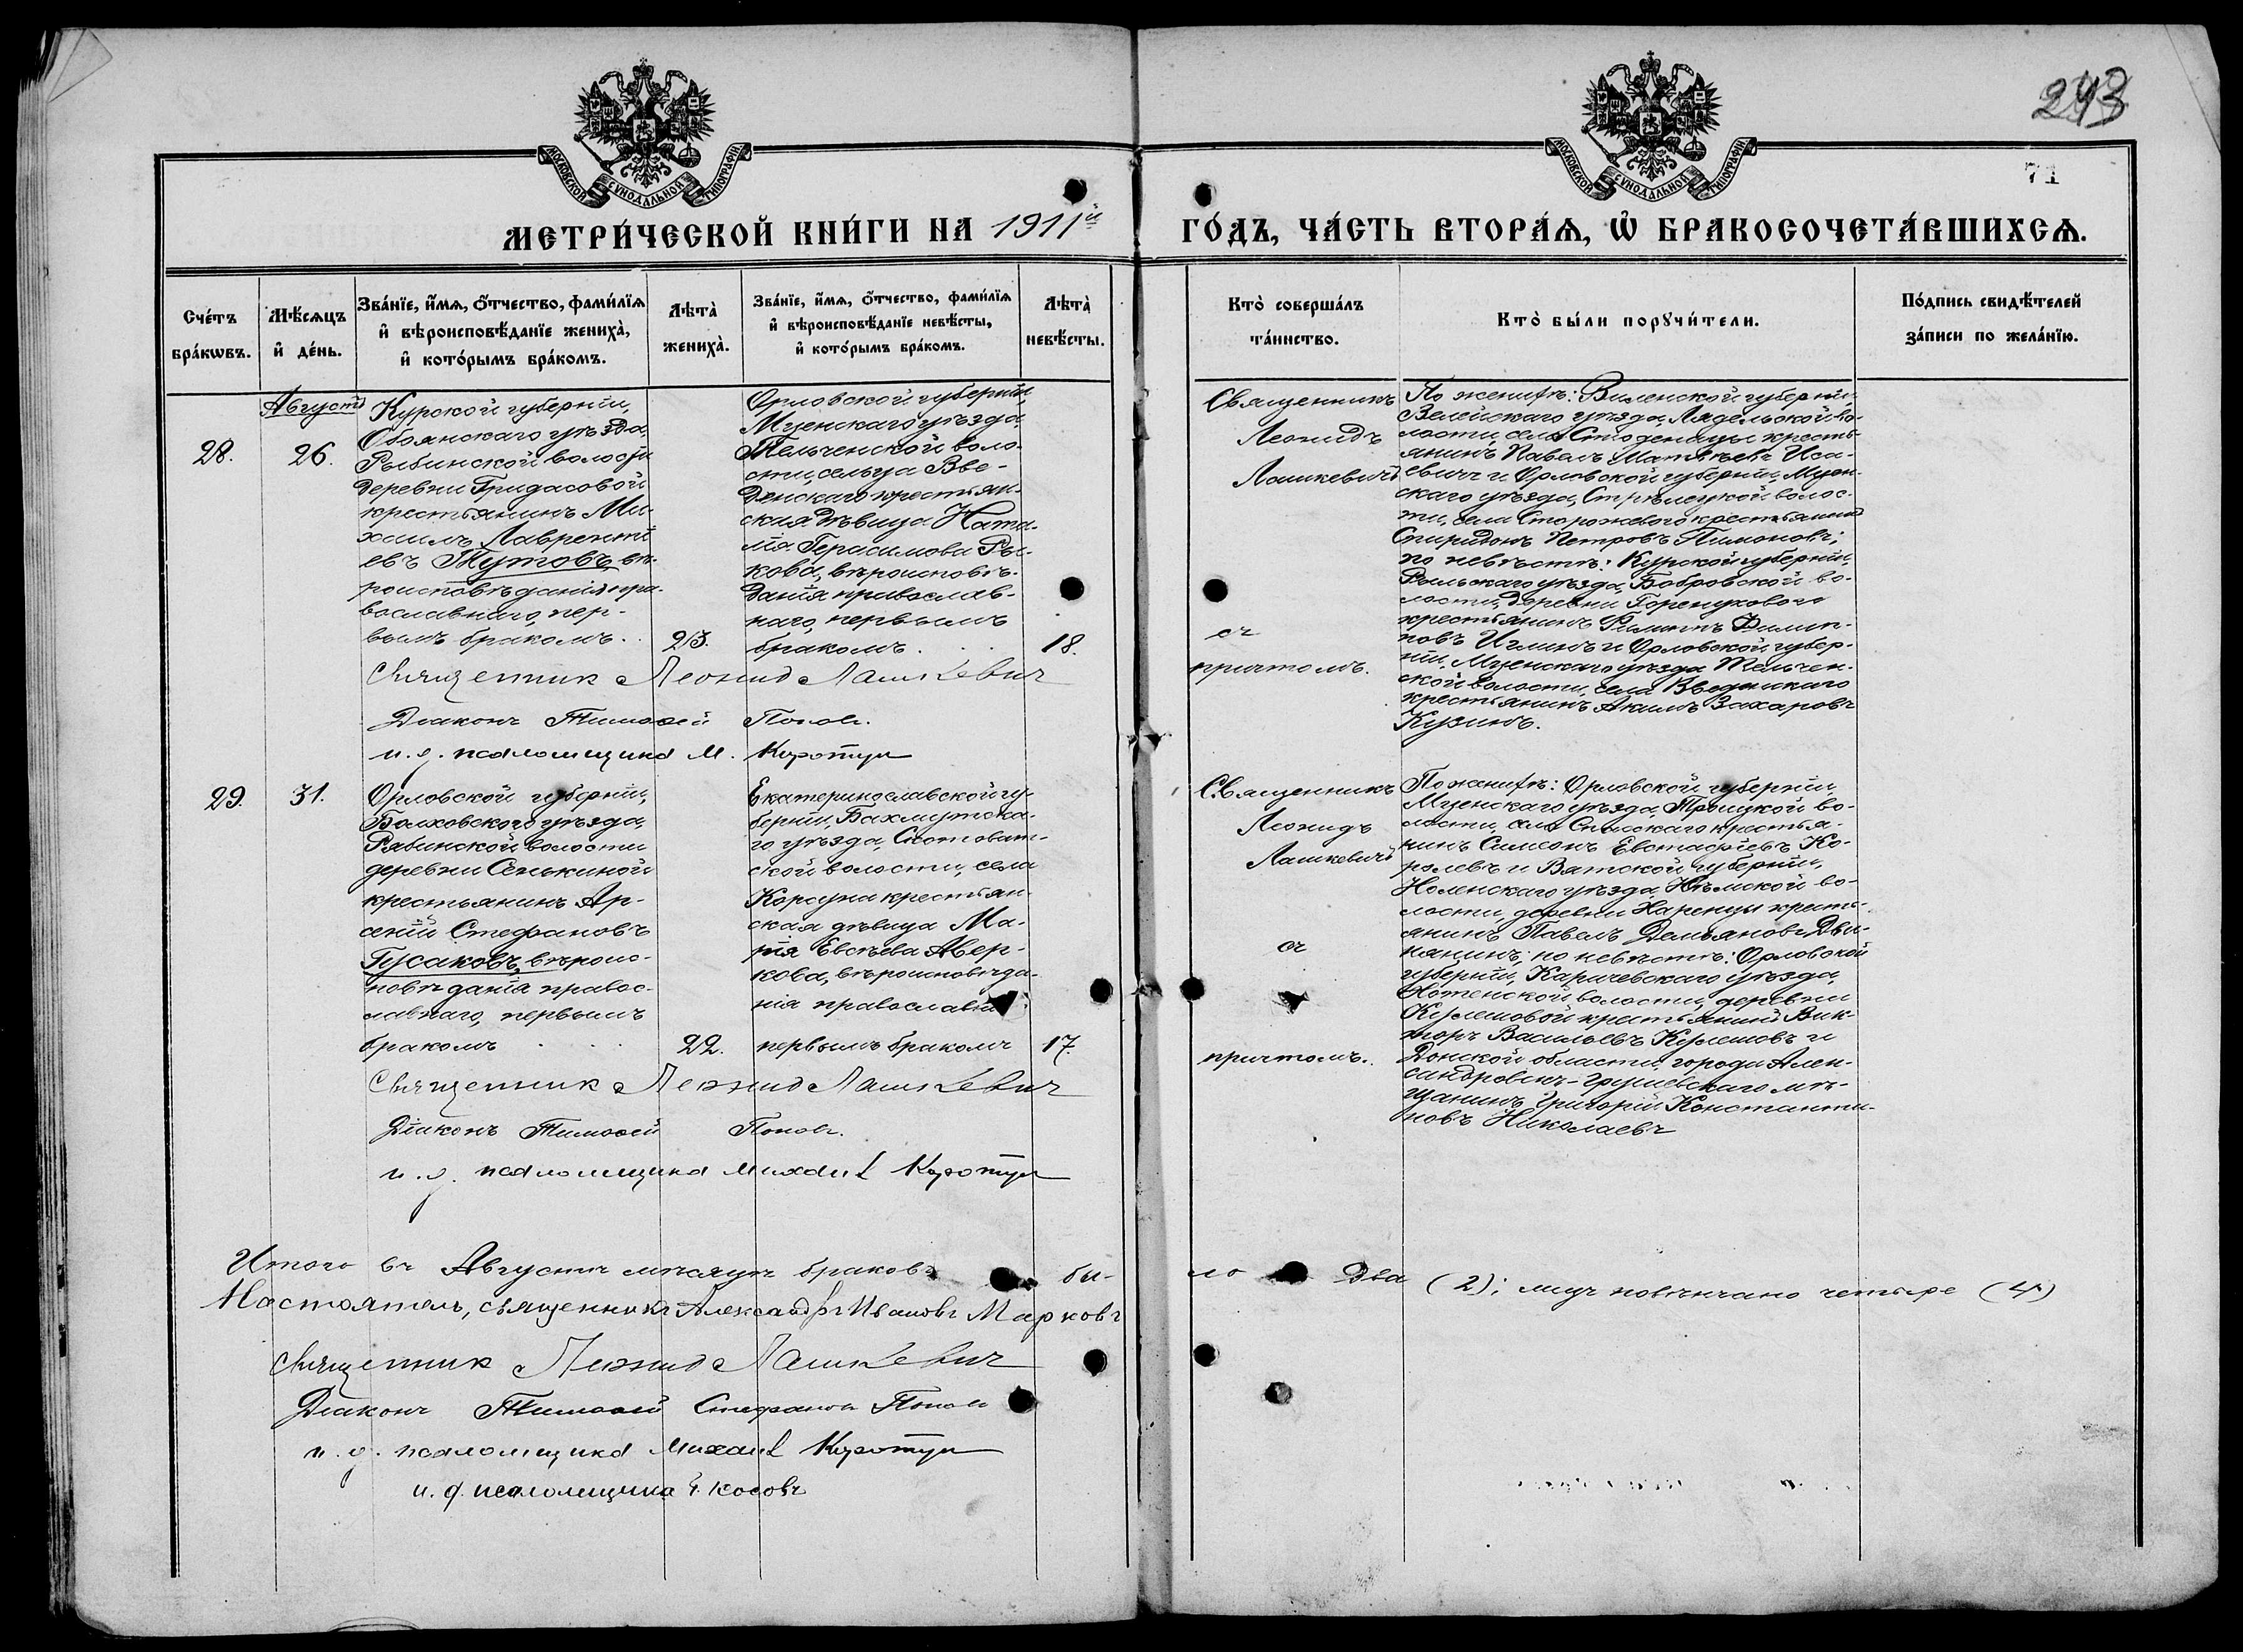 243
71
МОСКОВСКОЙ СУНОДАЛЬНОЙ ТИПОГРАФІИ
МОСКОВСКОЙ СУНОДАЛЬНОЙ ТИПОГРАФІИ
МЕТРИ́ЧЕСКОЙ КНИ́ГИ НА 1911й
ГО́ДЪ, ЧА́СТЬ ВТОРА́Ѧ, Ѽ БРАКОСОЧЕТА́ВШИХСѦ.
Сче́тъ
бра́кѡвъ.
Мѣ́сѧцъ
и҆ де́нь.
Зва́нїе, и҆́мѧ, ѻ҆́тчество, фами́лїѧ
и҆ вѣроисповѣ́данїе жениха̀,
и҆ кото́рымъ бра́комъ.
Лѣта̀
жениха̀.
Зва́нїе, и҆́мѧ, ѻ҆́тчество, фами́лїѧ
и҆ вѣроисповѣ́данїе невѣ́сты,
и҆ кото́рымъ бра́комъ.
Лѣта̀
невѣ́сты.
Кто̀ соверша́лъ
та́инство.
Кто̀ бы́ли порꙋчи́тели.
По́дпись свидѣ́телей
за́писи по жела́нїю.
Августъ
28.
26.
Курской губерніи,
Обоянскаго уѣзда,
Рыбинской волости
деревни Гридасовой
крестьянинъ Ми-
хаилъ Лавренті-
евъ Тутовъ, вѣ-
роисповѣданія пра-
вославнаго, пер-
вымъ бракомъ. .
23.
Орловской губерніи,
Мценскаго уѣзда,
Тельченской воло-
сти, сельца Вве-
денскаго крестьян-
ская дѣвица Ната-
лія Герасимова Ры-
кова, вѣроисповѣ-
данія православ-
наго, первымъ
бракомъ. . .
18.
Священникъ
Леонидъ
Лашкевичъ
съ
причтомъ.
По женихѣ: Виленской губерніи,
Вилейскаго уѣзда, Лядельской во-
лости, села Стоденицы кресть-
янинъ Павелъ Матвѣевъ Иса-
евичъ и Орловской губерніи, Мцен-
скаго уѣзда, Стрѣлецкой волос-
ти, села Сторожевого крестьянинъ
Спиридонъ Петровъ Пимоновъ;
по невѣстѣ: Курской губерніи,
Рыльскаго уѣзда, Бобровской во-
лости, деревни
крестьянинъ Филип-
повъ и Орловской губер-
ніи, Мценскаго уѣзда Тельчен-
ской волости, села Введенскаго
крестьянинъ Акимъ Захаровъ
Кузинъ.
Священник Леонид Лашкевич
Діаконъ Тимоѳей Поповъ.
и. д. псаломщика М. Коротун
29.
31.
Орловской губерніи,
Болховскаго уѣзда,
Рябинской волости
деревни Сенькиной
крестьянинъ Ар-
сеній Стефановъ
Гусаковъ, вѣроис-
повѣданія правос-
лавнаго, первымъ
бракомъ . . .
22.
Екатеринославской гу-
берніи, Бахмутска-
го уѣзда, Скотоват-
ской волости, села
Корсуна крестьян-
ская дѣвица Ма-
рія Евсѣева Авер-
кова, вѣроисповѣда-
нія православн
первымъ бракомъ
17.
Священникъ
Леонидъ
Лашкевичъ
съ
причтомъ.
По женихѣ: Орловской губерніи,
Мценскаго уѣзда, Троицкой во-
лости, села Спасскаго крестья-
нинъ Симеонъ Евстафіевъ Ко-
ролевъ и Вятской губерніи,
Ноленскаго уѣзда Нѣмской во-
лости, деревни Наренцы кресть-
янинъ Павелъ Демьяновъ Дви-
нянинъ; по невѣстѣ: Орловской
губерніи, Карачевскаго уѣзда,
волости, деревни
Кулешовой крестьянинъ Вик-
торъ Васильевъ Кулешовъ и
Донской области города Алек-
сандровскъ-Грушевскаго мѣ-
щанинъ Григорій Константи-
новъ Николаевъ
Священник Леонид Лашкевич
Діаконъ Тимоѳей Поповъ.
и. д. псаломщика Михаил Коротун
Итого въ Августѣ мѣсяцѣ браковъ бы-
ло два (2); лицъ повѣнчано четыре (4)
Настоятель, священникъ Александръ Ивановъ Марковъ
Священник Леонид Лашкевич
Діаконъ Тимоѳей Стефановъ Поповъ
и. д. псаломщика Михаил Коротун
и. д. псаломщика Косовъ